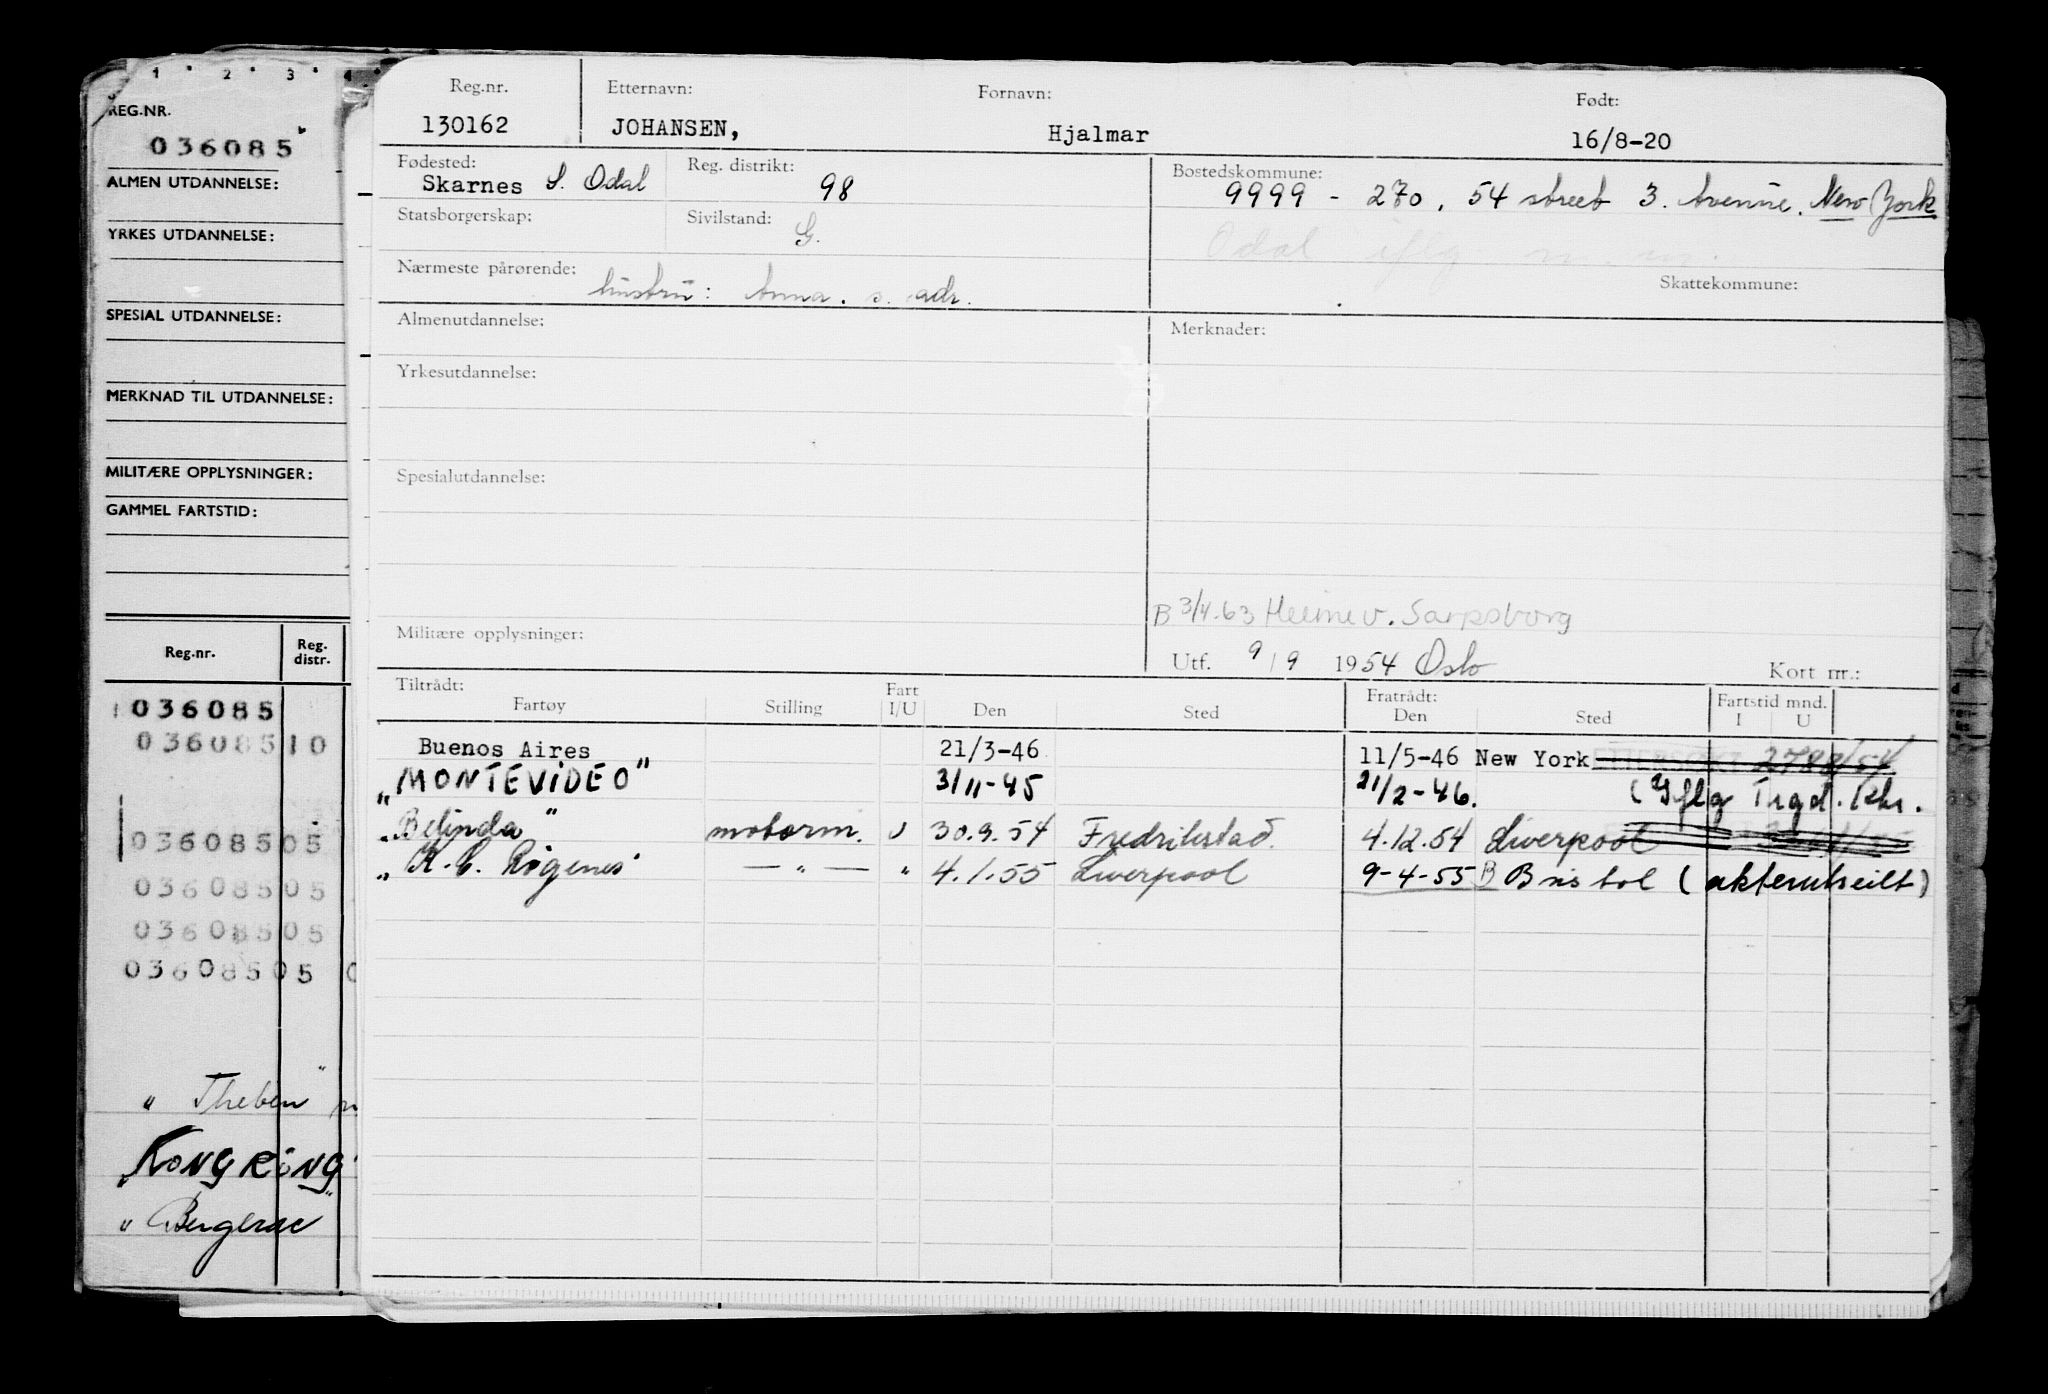 1 2 3 4
REG.NR.
036085
ALMEN UTDANNELSE:
YRKES UTDANNELSE:
SPESIAL UTDANNELSE:
MERKNAD TIL UTDANNELSE:
MILITÆRE OPPLYSNINGER:
GAMMEL FARTSTID:
Reg.nr. Reg. distr.
036085
036085 10
036085 05
036085 05
036085 05
036085 05
" Theben"
"KONGRING"
" Bergerac"
Reg.nr. Etternavn: Fornavn: Født:
130162 JOHANSEN, Hjalmar 16/8-20
Fødested: Reg. distrikt: Bostedskommune:
Skarnes S. Odal 98 9999 - 270, 54 street 3. Avenue. New York
Statsborgerskap: Sivilstand: G.
Odal iflg. m.m.
Nærmeste pårørende: hustru: Anna. s. adr. Skattekommune:
Almenutdannelse: Merknader:
Yrkesutdannelse:
Spesialutdannelse:
B 3/4.63 Heimev. Sarpsborg
Militære opplysninger:
Utf. 9/9 1954 Oslo Kort nr.:
Tiltrådt: Fratrådt: Fartstid mnd.
Fartøy Stilling Fart I/U Den Sted Den Sted I U
Buenos Aires 21/3-46 11/5-46 New York
"MONTEVIDEO" 3/11-45 21/2-46. (Iflg Trgd. Khr.
"Belinda" motorm. U 30.9.54 Fredrikstad. 4.12.54 Liverpool
"K. C. Rogenes" — " — " 4.1.55 Liverpool 9-4-55 B Bristol (akterutseilt)